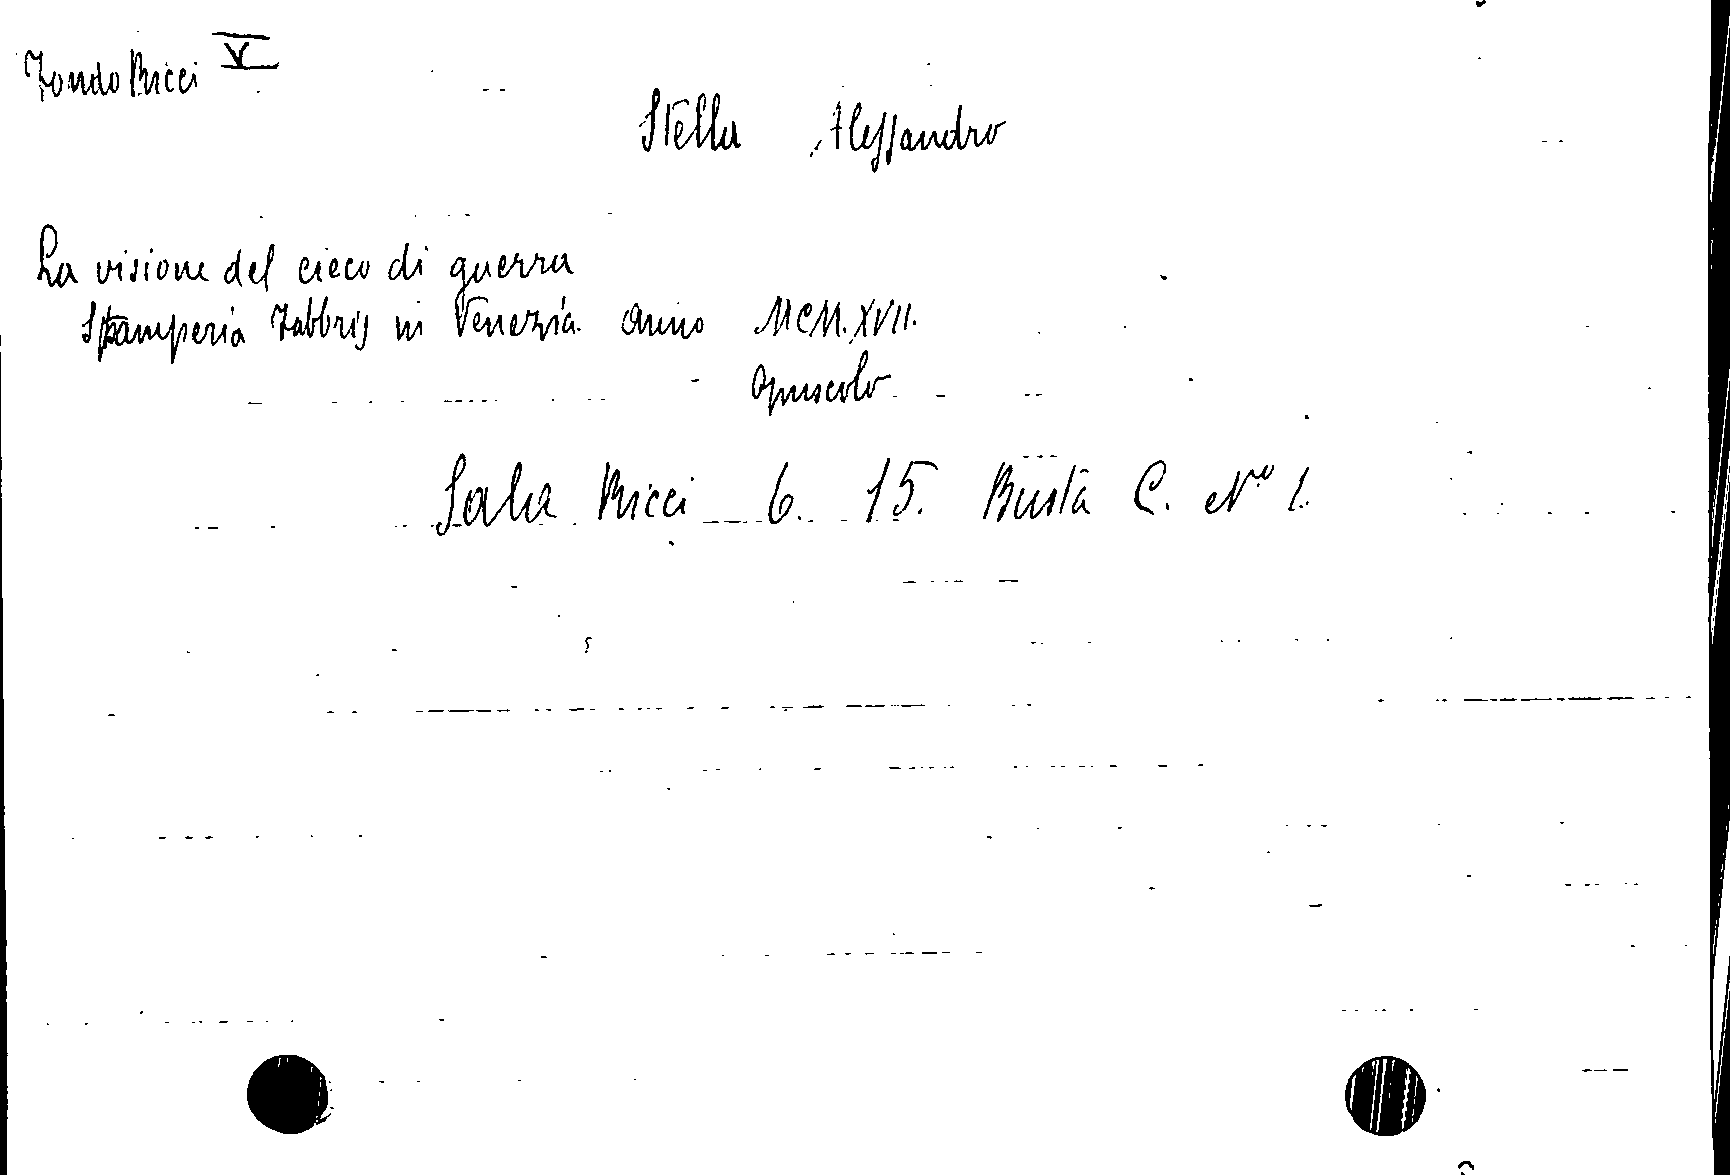 Fondo Ricci V
Stella Alessandro
La visione del cieco di guerra
Stamperia Fabbris in Venezia. anno MCM.XVII.
opuscolo
Sala Ricci 6. 15. Busta C. No 1.